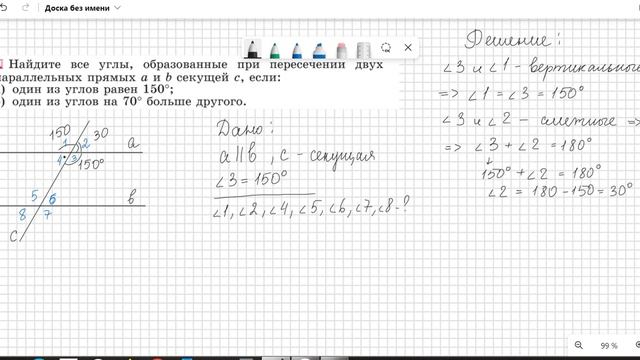 Доска без имени
Найдите все углы, образованные при пересечении двух
параллельных прямых a и b секущей c, если:
) один из углов равен 150°;
) один из углов на 70° больше другого.
150 30
1 2 a
4 3 150°
5 6 b
8 7
c
Дано:
a || b , c - секущая
∠3 = 150°
∠1, ∠2, ∠4, ∠5, ∠6, ∠7, ∠8 - ?
Решение:
∠3 и ∠1 - вертикальные
=> ∠1 = ∠3 = 150°
∠3 и ∠2 - смежные =>
=> ∠3 + ∠2 = 180°
150° + ∠2 = 180°
∠2 = 180 - 150 = 30°
99 %